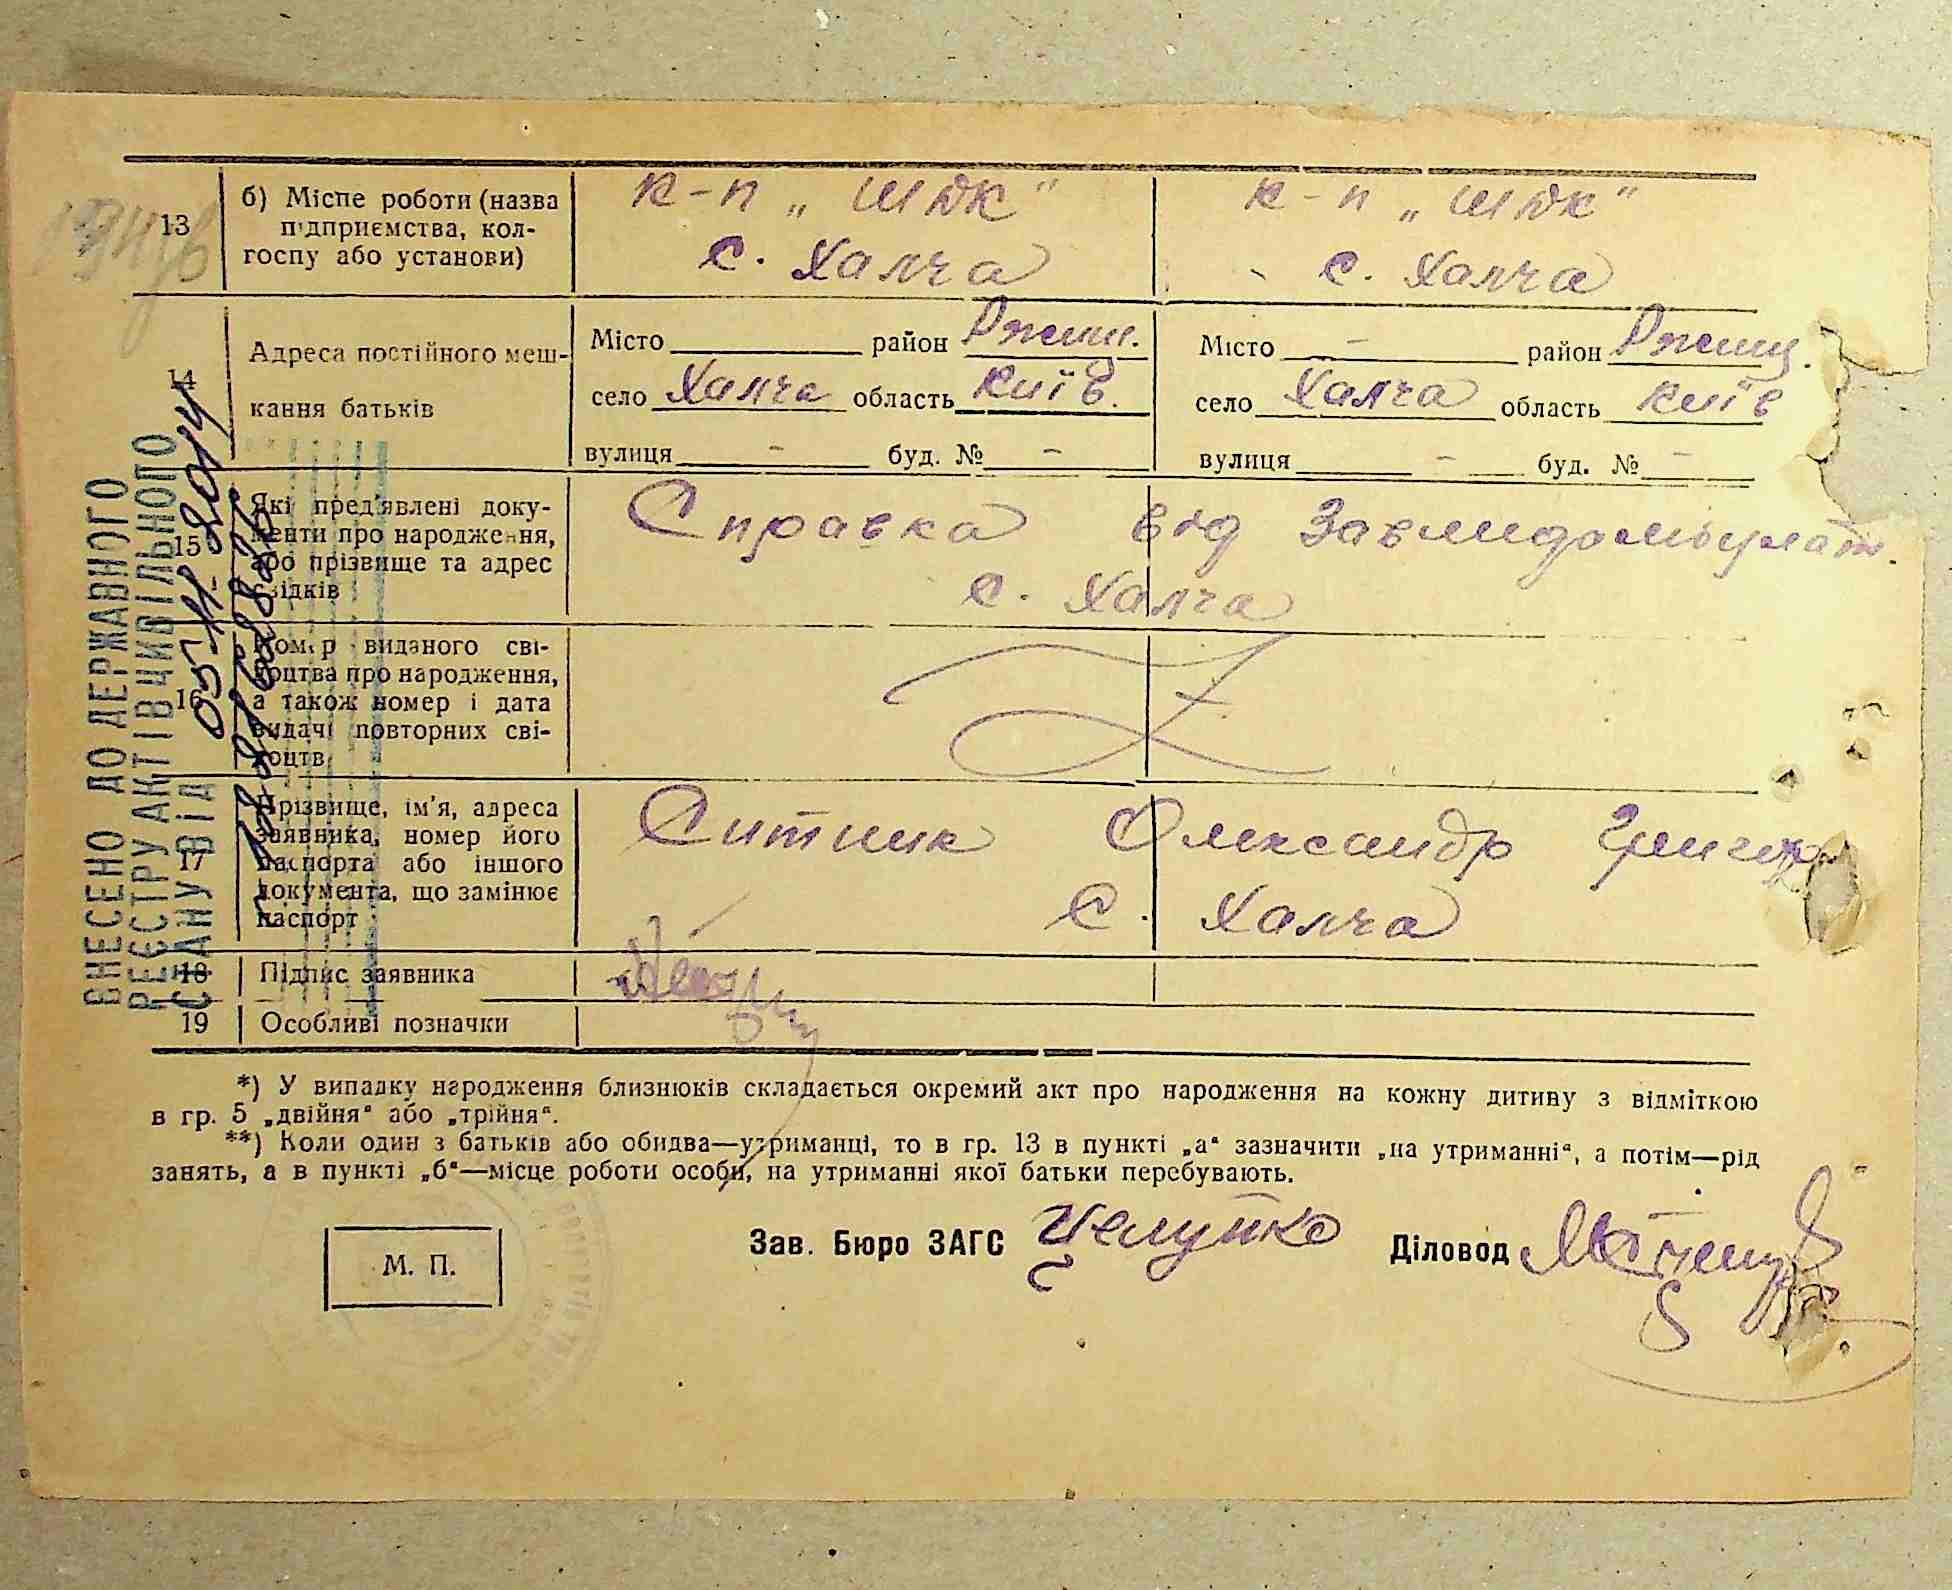 13
б) Місце роботи (назва
підприємства, кол-
госпу або установи)
к-п „ШДК"
с. Халча
к-п „ШДК"
с. Халча
14
Адреса постійного меш-
кання батьків
Місто район Ржищ.
село Халча область Київ.
вулиця - буд. № -
Місто - район Ржищ.
село Халча область Київ
вулиця - буд. № -
15
Які пред'явлені доку-
менти про народження,
або прізвище та адрес
свідків
Справка від
с. Халча
16
Номер виданого сві-
доцтва про народження,
а також номер і дата
видачі повторних сві-
доцтв
17
Прізвище, ім'я, адреса
заявника, номер його
паспорта або іншого
документа, що замінює
паспорт
Ситник Олександр
с. Халча
18
Підпис заявника
19
Особливі позначки
ВНЕСЕНО ДО ДЕРЖАВНОГО
РЕЄСТРУ АКТІВ ЦИВІЛЬНОГО
СТАНУ ВІД
*) У випадку народження близнюків складається окремий акт про народження на кожну дитину з відміткою
в гр. 5 „двійня" або „трійня".
**) Коли один з батьків або обидва—утриманці, то в гр. 13 в пункті „а" зазначити „на утриманні", а потім—рід
занять, а в пункті „б"—місце роботи особи, на утриманні якої батьки перебувають.
М. П.
Зав. Бюро ЗАГС Целуйко
Діловод